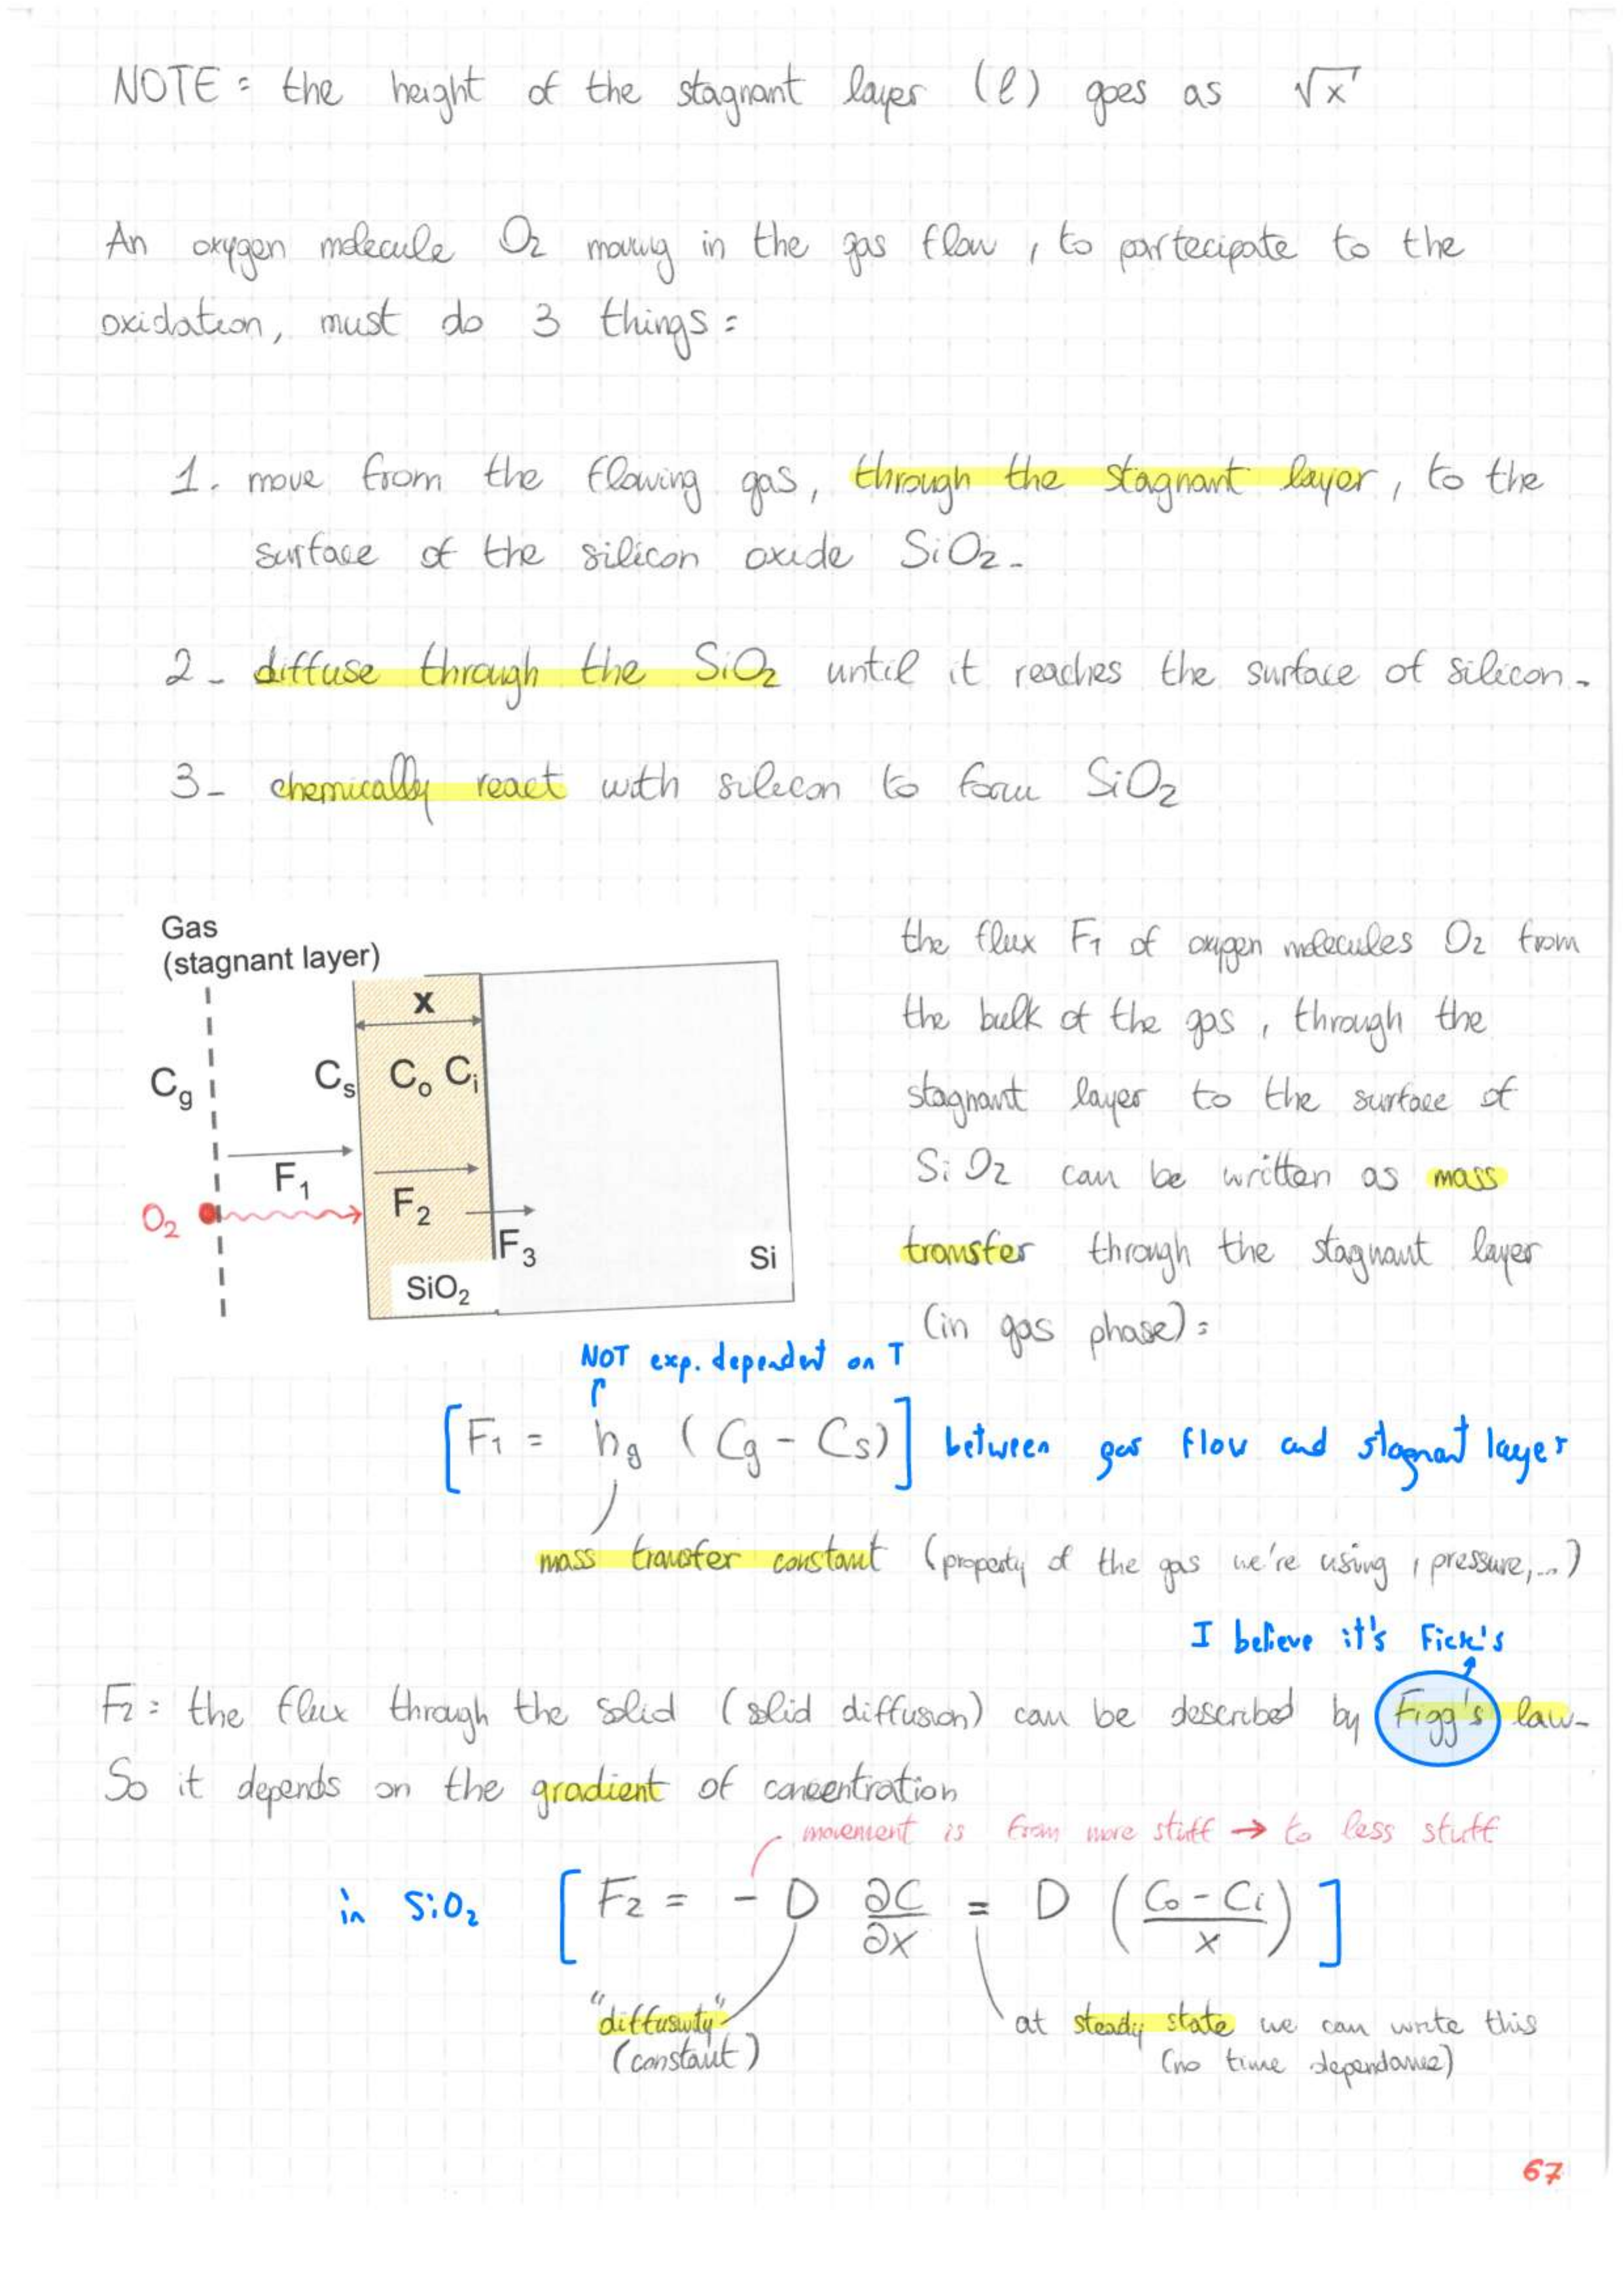 NOTE: the height of the stagnant layer (ℓ) goes as √x
An oxygen molecule O₂ moving in the gas flow, to partecipate to the
oxidation, must do 3 things:
1. move from the flowing gas, through the stagnant layer, to the
surface of the silicon oxide SiO₂.
2- diffuse through the SiO₂ until it reaches the surface of silicon.
3- chemically react with silicon to form SiO₂
Gas
(stagnant layer)
x
C_g
C_s
C_o
C_i
F₁
F₂
F₃
O₂
SiO₂
Si
the flux F₁ of oxygen molecules O₂ from
the bulk of the gas, through the
stagnant layer to the surface of
SiO₂ can be written as mass
transfer through the stagnant layer
(in gas phase):
NOT exp. dependent on T
[F₁ = h_g (C_g - C_s)] between gas flow and stagnant layer
mass transfer constant (property of the gas we're using, pressure,...)
I believe it's Fick's
F₂: the flux through the solid (solid diffusion) can be described by Figg's law-
So it depends on the gradient of concentration
movement is from more stuff → to less stuff
in SiO₂ [F₂ = - D ∂C/∂x = D ((C_o - C_i)/x)]
"diffusivity"
(constant)
at steady state we can write this
(no time dependance)
67